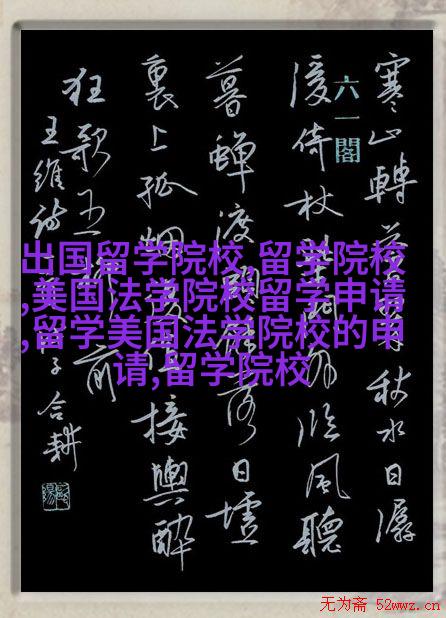 六一閣
寒山轉蒼翠秋水日潺
湲倚杖柴門外临風聽
暮蟬渡頭餘落日墟
裏上孤烟復值接輿醉
狂歌五柳前
王維詩 子合耕
出国留学院校,留学院校
,美国法学院校留学申请
,留学美国法学院校的申
请,留学院校
无为斋 52wwz.cn